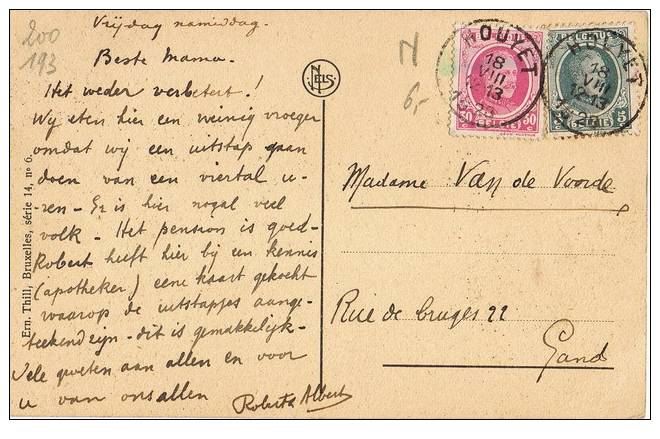 Vrijdag namiddag.
200
193
Beste Mama.
Het weder verbetert!
Wij eten hier een weinig vroeger
omdat wij een uitstap gaan
doen van een viertal u-
ren - Er is hier nogal veel
volk - Het pension is goed -
Robert heeft hier bij een kennis
(apotheker) eene kaart gekocht
waarop de uitstapjes aange-
teekend zijn - dit is gemakkelijk -
Vele groeten aan allen en voor
u van ons allen
Robert & Albert
NELS
Ern. Thill, Bruxelles, série 14, no 6.
N
6,-
HOUYET
18
VIII
12-13
HOUYET
18
VIII
12-13
30 30
5
Madame Van de Voorde
Rue de bruges 22
Gand